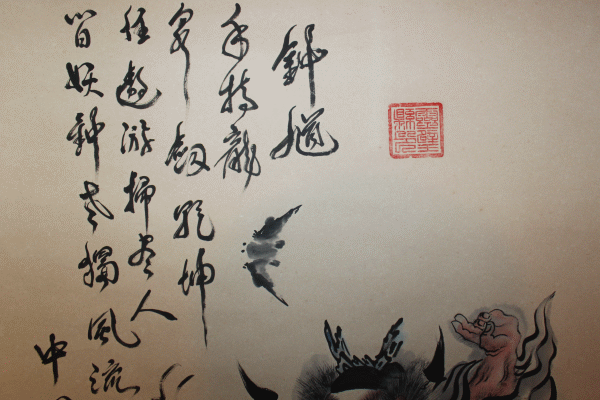 鍾馗
手持龍
泉劍乾坤
任遨游掃盡人
間妖鍾老獨風流
中